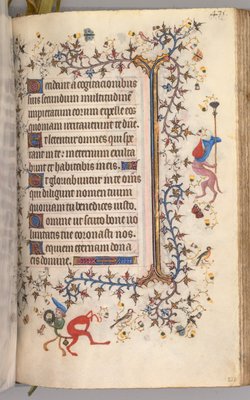 471.
Decidant a cogitacionibus
suis secundum multitudinē
impietatum eorum expelle eos
quoniam irritauerunt te dñe.
Et letentur omnes qui spe
rant in te: in eternum exulta
bunt et habitabis in eis.
Et gloriabuntur in te omnes
qui diligunt nomen tuum
quoniam tu benedices iusto.
Domine ut scuto bone uo
luntatis tue coronasti nos.
Requiem eternam dona
eis domine.